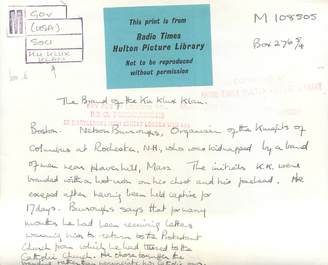 GOV
(USA)
SOCI
KU KLUX
KLAN
box 6
This print is from
Radio Times
Hulton Picture Library
Not to be reproduced
without permission
M 108505
Box 276 5/4
The Brand of the Ku Klux Klan.
Boston. Nelson Burroughs, Organiser of the Knights of
Columbus at Rochester, N.H., who was kidnapped by a band
of men near Haverhill, Mass. The initials K.K. were
branded with a hot iron on his chest and his forehead. He
escaped after having been held captive for
17 days. Burroughs says that for many
months he had been receiving letters
warning him to return to the Protestant
Church from which he had turned to the
Catholic Church. He chose